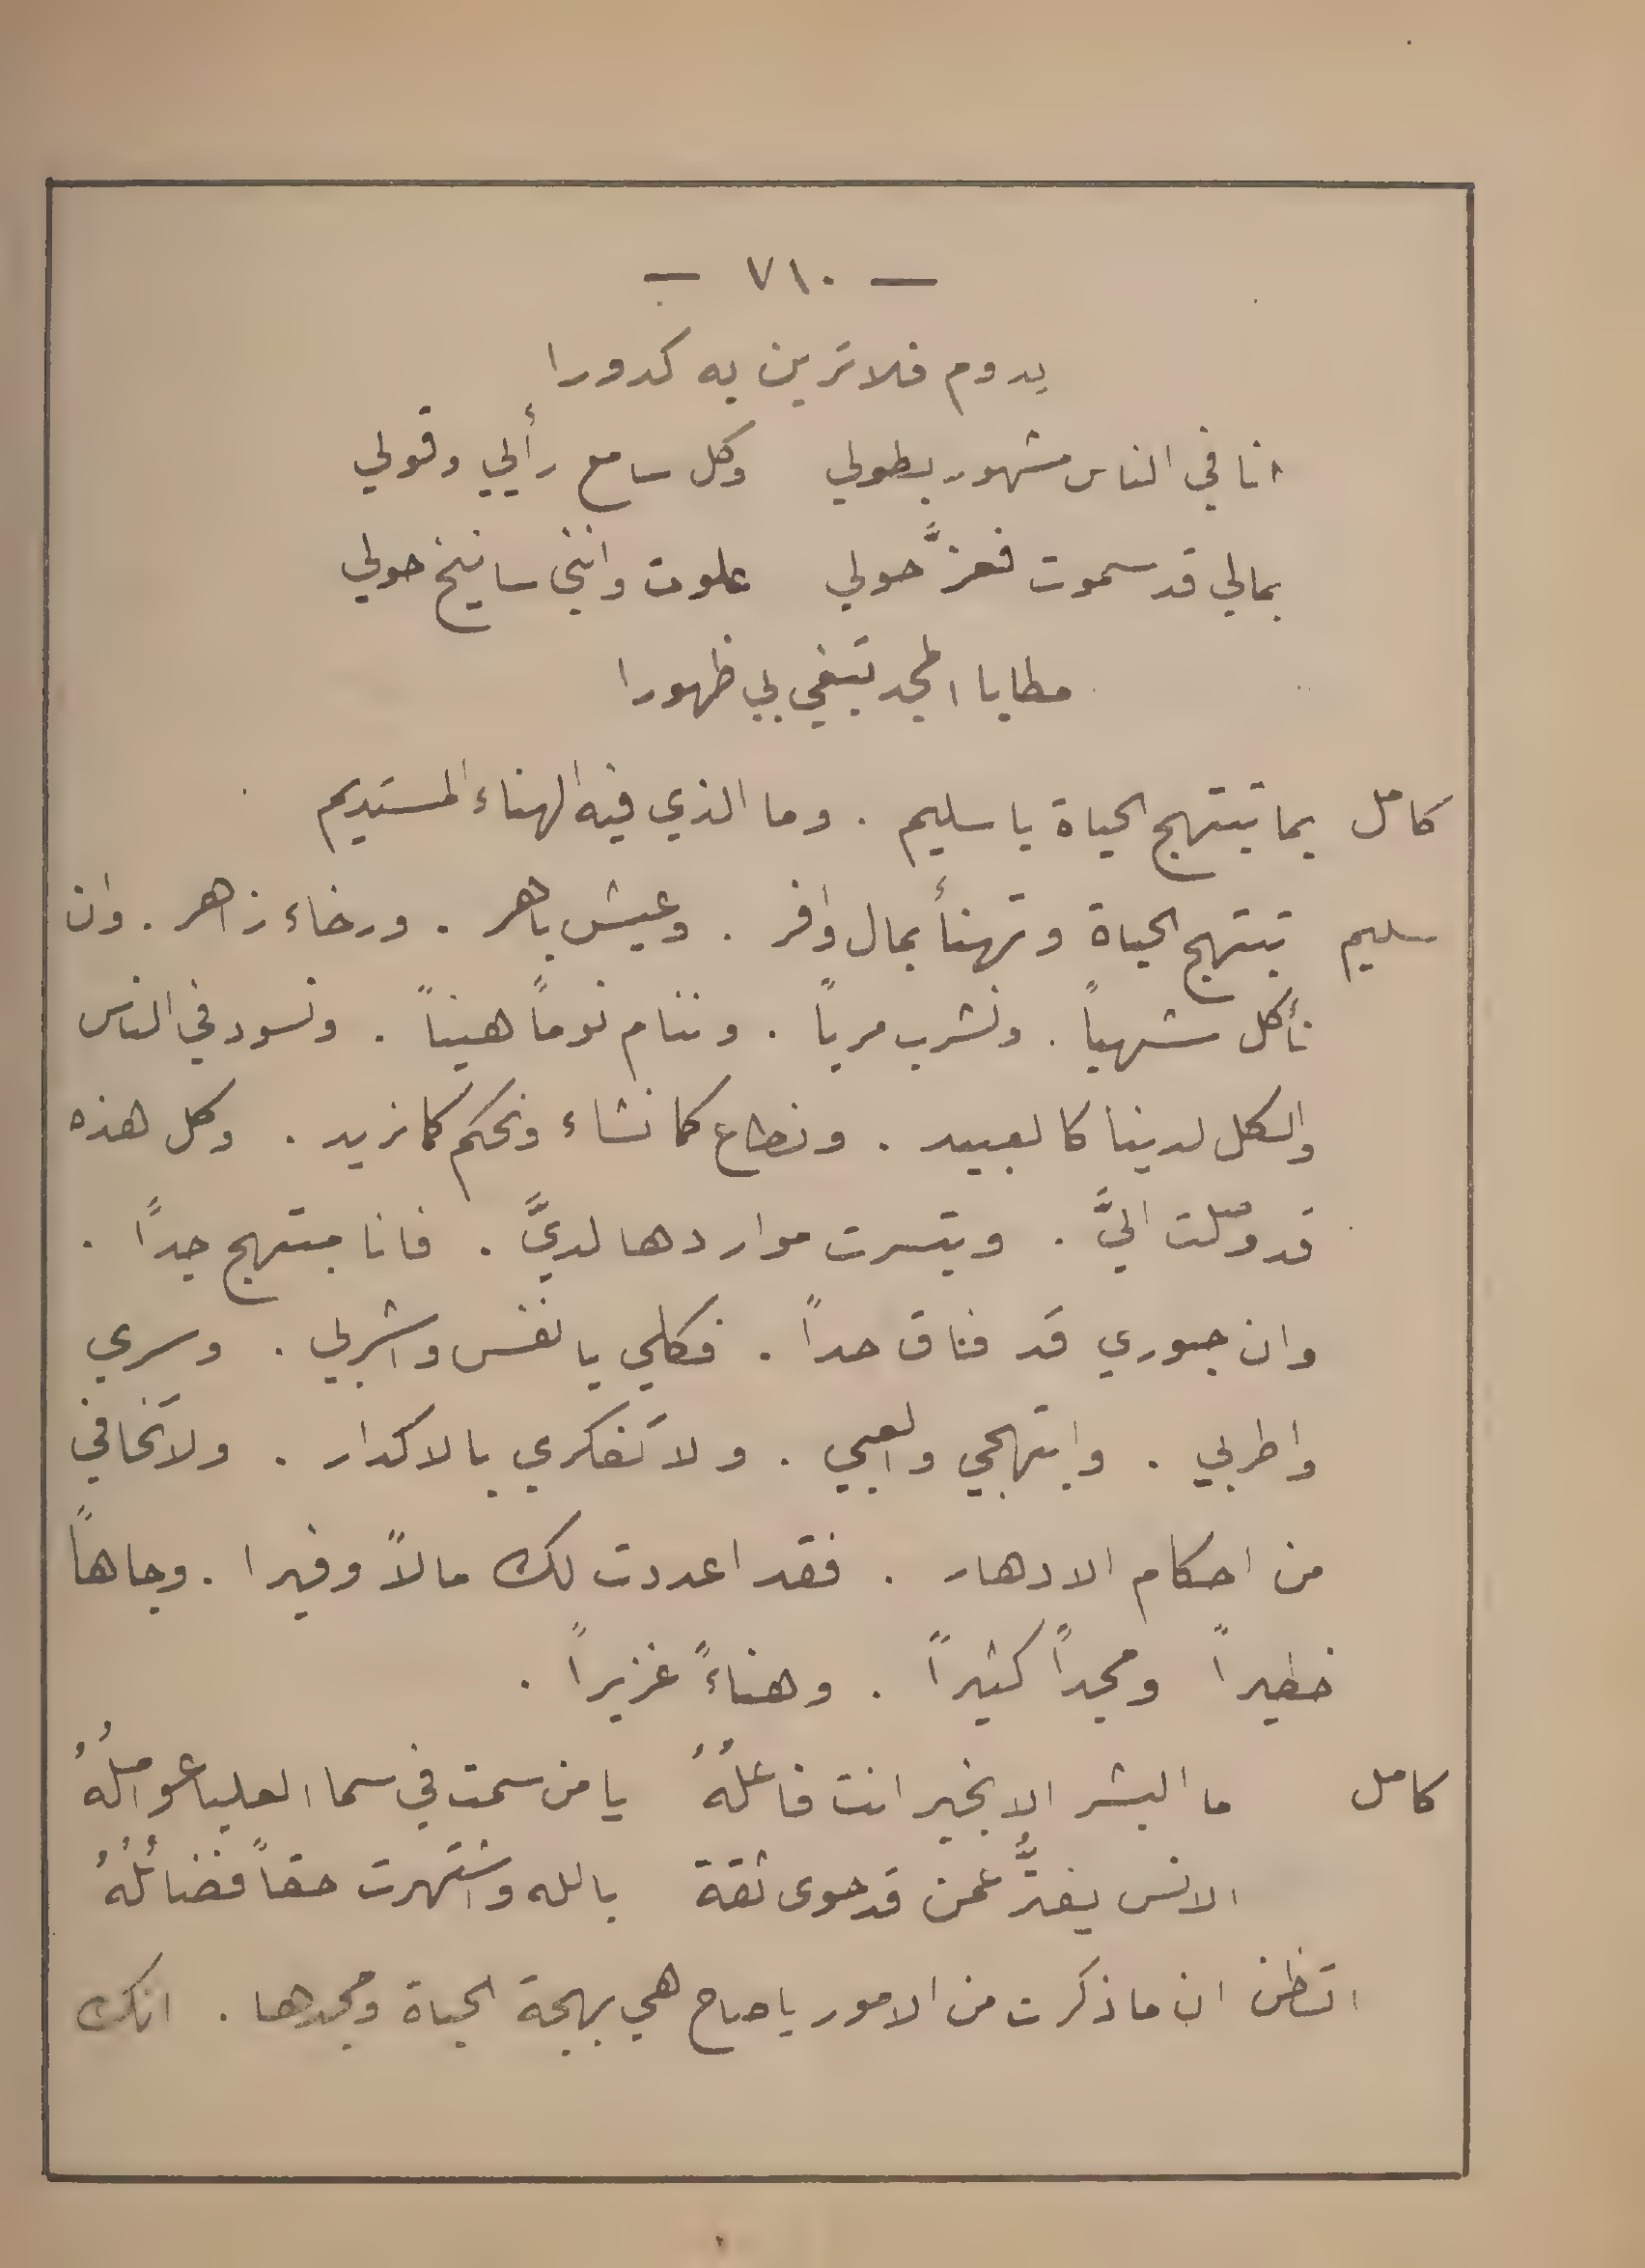 — ٧١٠ —
يدوم فلا ترين به كدورا
انا في الناس مشهور بطولي وكل سامع رأيي وقولي
بمالي قد سموت فعزَّ حولي علوت وانني سانيخ حولي
مطايا المجد تبغي بي ظهورا
كامل بما تبتهج الحياة يا سليم . وما الذي فيه الهناء المستديم
سليم تبتهج الحياة وتهنأ بمال وافر . وعيش باهر . ورخاء زاهر . وان
نأكل شهياً . ونشرب مرياً . وننام نوماً هنياً . ونسود في الناس
والكل لدينا كالعبيد . ونطاع كما نشاء ونحكم كما نريد . وكل هذه
قد وُكلت اليَّ . ويتسرت مواردها لديَّ . فانا مبتهج جداً .
وان حبوري قد فاق حداً . فكلي يا نفس واشربي . وسري
واطربي . وابتهجي والعبي . ولا تفكري بالاكدار . ولا تخافي
من احكام الادهار . فقد اعددت لك مالاً وفيرا . وجاهاً
خطيراً ومجداً كثيراً . وهناءً غزيراً .
كامل ما البشر الا بخير انت فاعلهُ يا من سمت في سما العليا عواملهُ
الانس يفترُّ عمن قد حوى ثقة بالله واشتهرت حقاً فضائلُهُ
اتظن ان ما ذكرت من الامور يا صاح هي بهجة الحياة ومجدها . انك